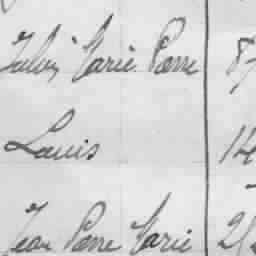 Jules Marie Pierre 87
Louis 14
Jean Pierre Marie 2